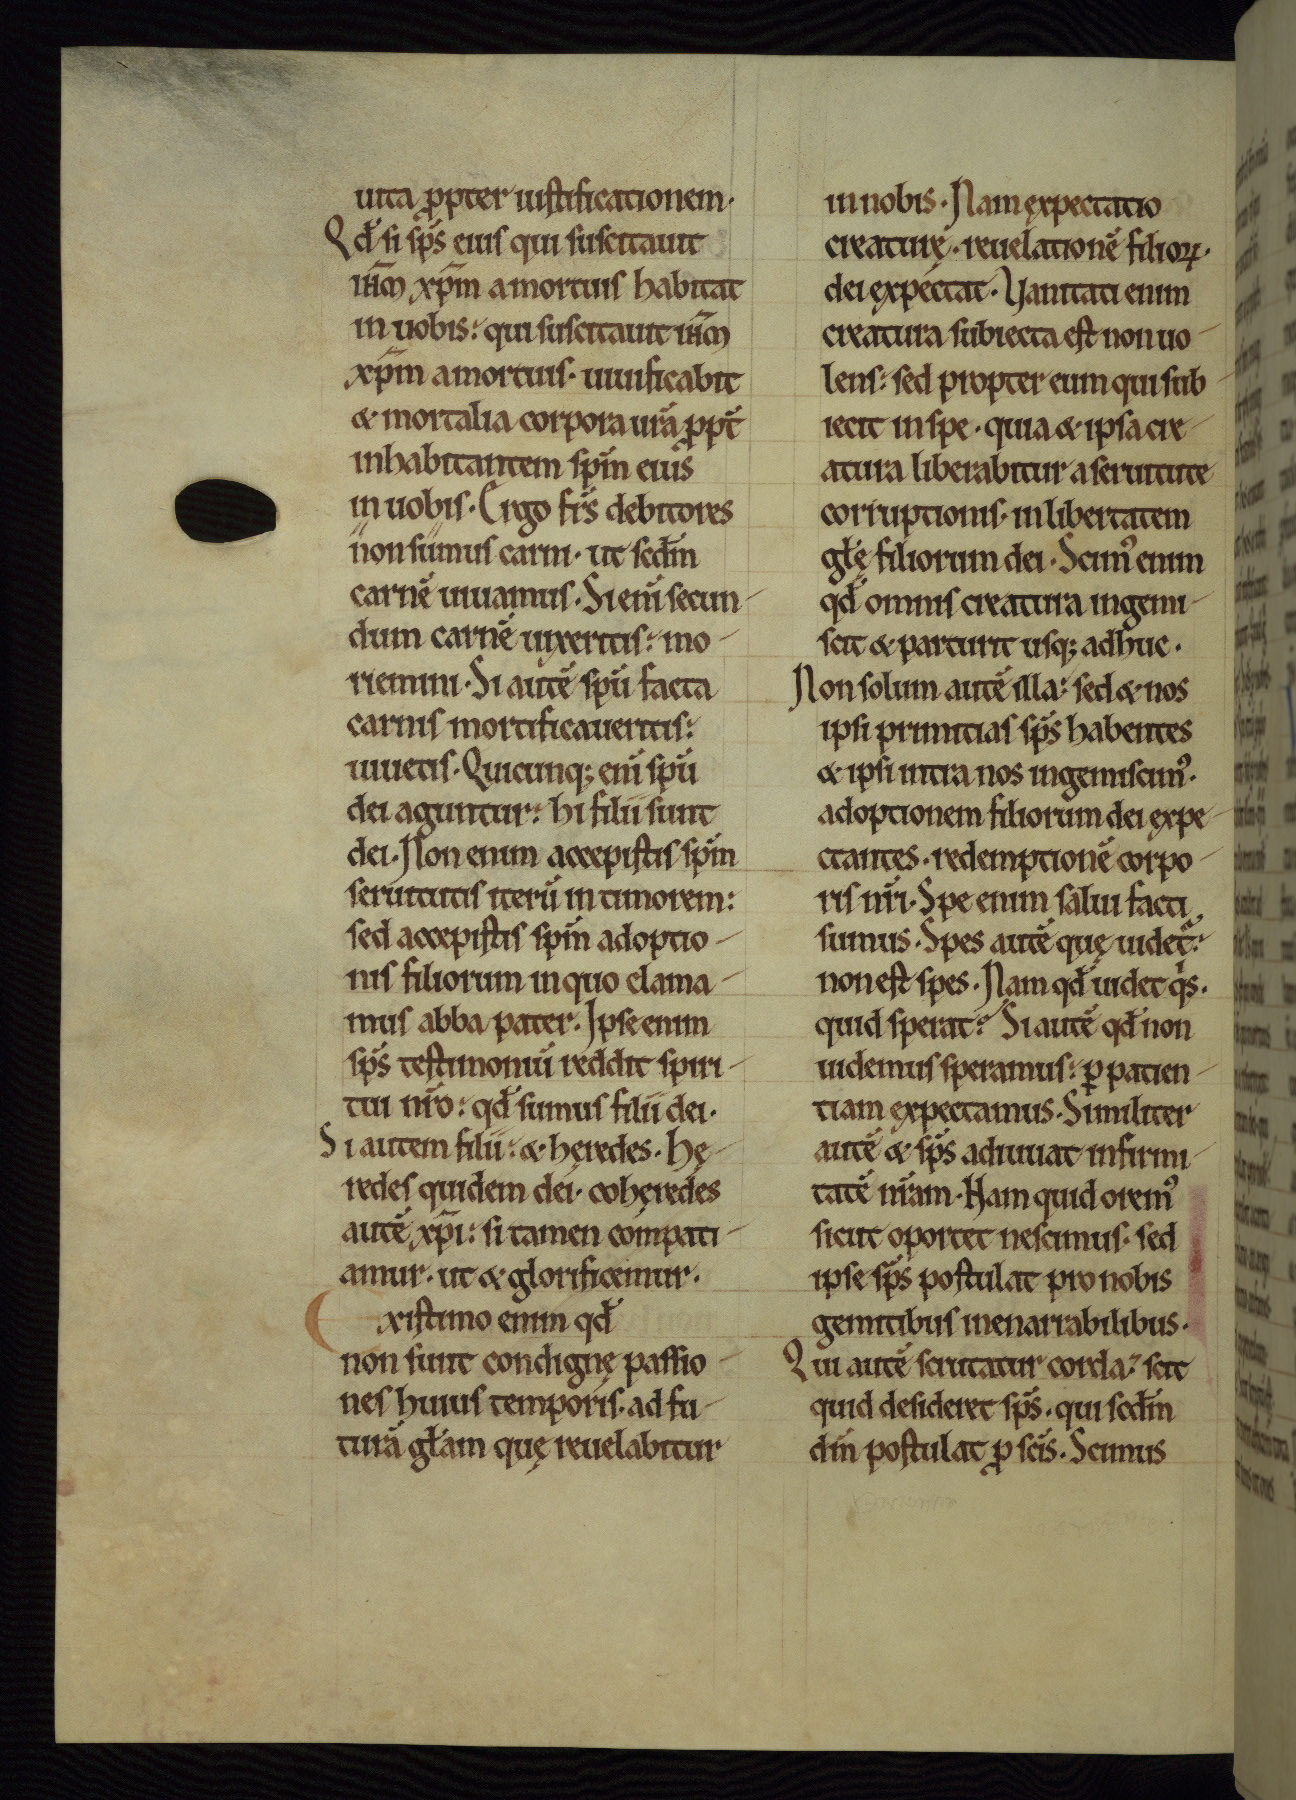 uita ꝓpter iustificationem·
Qđ si sp̄s eius qui suscitauit
ih̄m xp̄m a mortuis habitat
in uobis: qui suscitauit ih̄m
xp̄m a mortuis· uiuificabit
& mortalia corpora ur̄a ꝓpt̄
inhabitantem sp̄m eius
in uobis· Ergo fr̄s debitores
non sumus carni· ut secd̄m
carnē uiuamus· Si enī secun-
dum carnē uixeritis: mo-
riemini· Si autē spū facta
carnis mortificaueritis:
uiuetis· Quicunq; enī spū
dei aguntur: hi filii sunt
dei· Non enim accepistis sp̄m
seruitutis iterū in timorem:
sed accepistis sp̄m adoptio-
nis filiorum in quo clama-
mus abba pater· Ipse enim
sp̄s testimoniū reddit spiri-
tui nr̄o: qđ sumus filii dei·
Si autem filii: & hęredes· hę-
redes quidem dei· cohęredes
autē xp̄i: si tamen compati-
amur· ut & glorificemur·
Existimo enim qđ
non sunt condignę passio-
nes huius temporis· ad fu-
turā gl̄am quę reuelabitur
in nobis· Nam expectatio
creaturę· reuelationē filioꝝ·
dei expectat· Vanitati enim
creatura subiecta est non uo-
lens: sed propter eum qui sub-
iecit in spe· quia & ipsa cre-
atura liberabitur a seruitute
corruptionis· in libertatem
gl̄ę filiorum dei· Scim᾽ enim
qđ omnis creatura ingemi-
scit & parturit usq; adhuc·
Non solum autē illa: sed & nos
ipsi primitias sp̄s habentes
& ipsi intra nos ingemiscim᾽·
adoptionem filiorum dei expe-
ctantes· redemptionē corpo-
ris nr̄i· Spe enim salui facti
sumus· Spes autē quę uidet᾽:
non est spes· Nam qđ uidet qⁱs·
quid sperat? Si autē qđ non
uidemus speramus: ꝑ patien-
tiam expectamus· Similiter
autē & sp̄s adiuuat infirmi-
tatē nr̄am· Nam quid orem᾽
sicut oportet nescimus· sed
ipse sp̄s postulat pro nobis
gemitibus inenarrabilibus·
Qui autē scrutatur corda: scit
quid desideret sp̄s· qui secd̄m
dm̄ postulat ꝓ sc̄is· Scimus